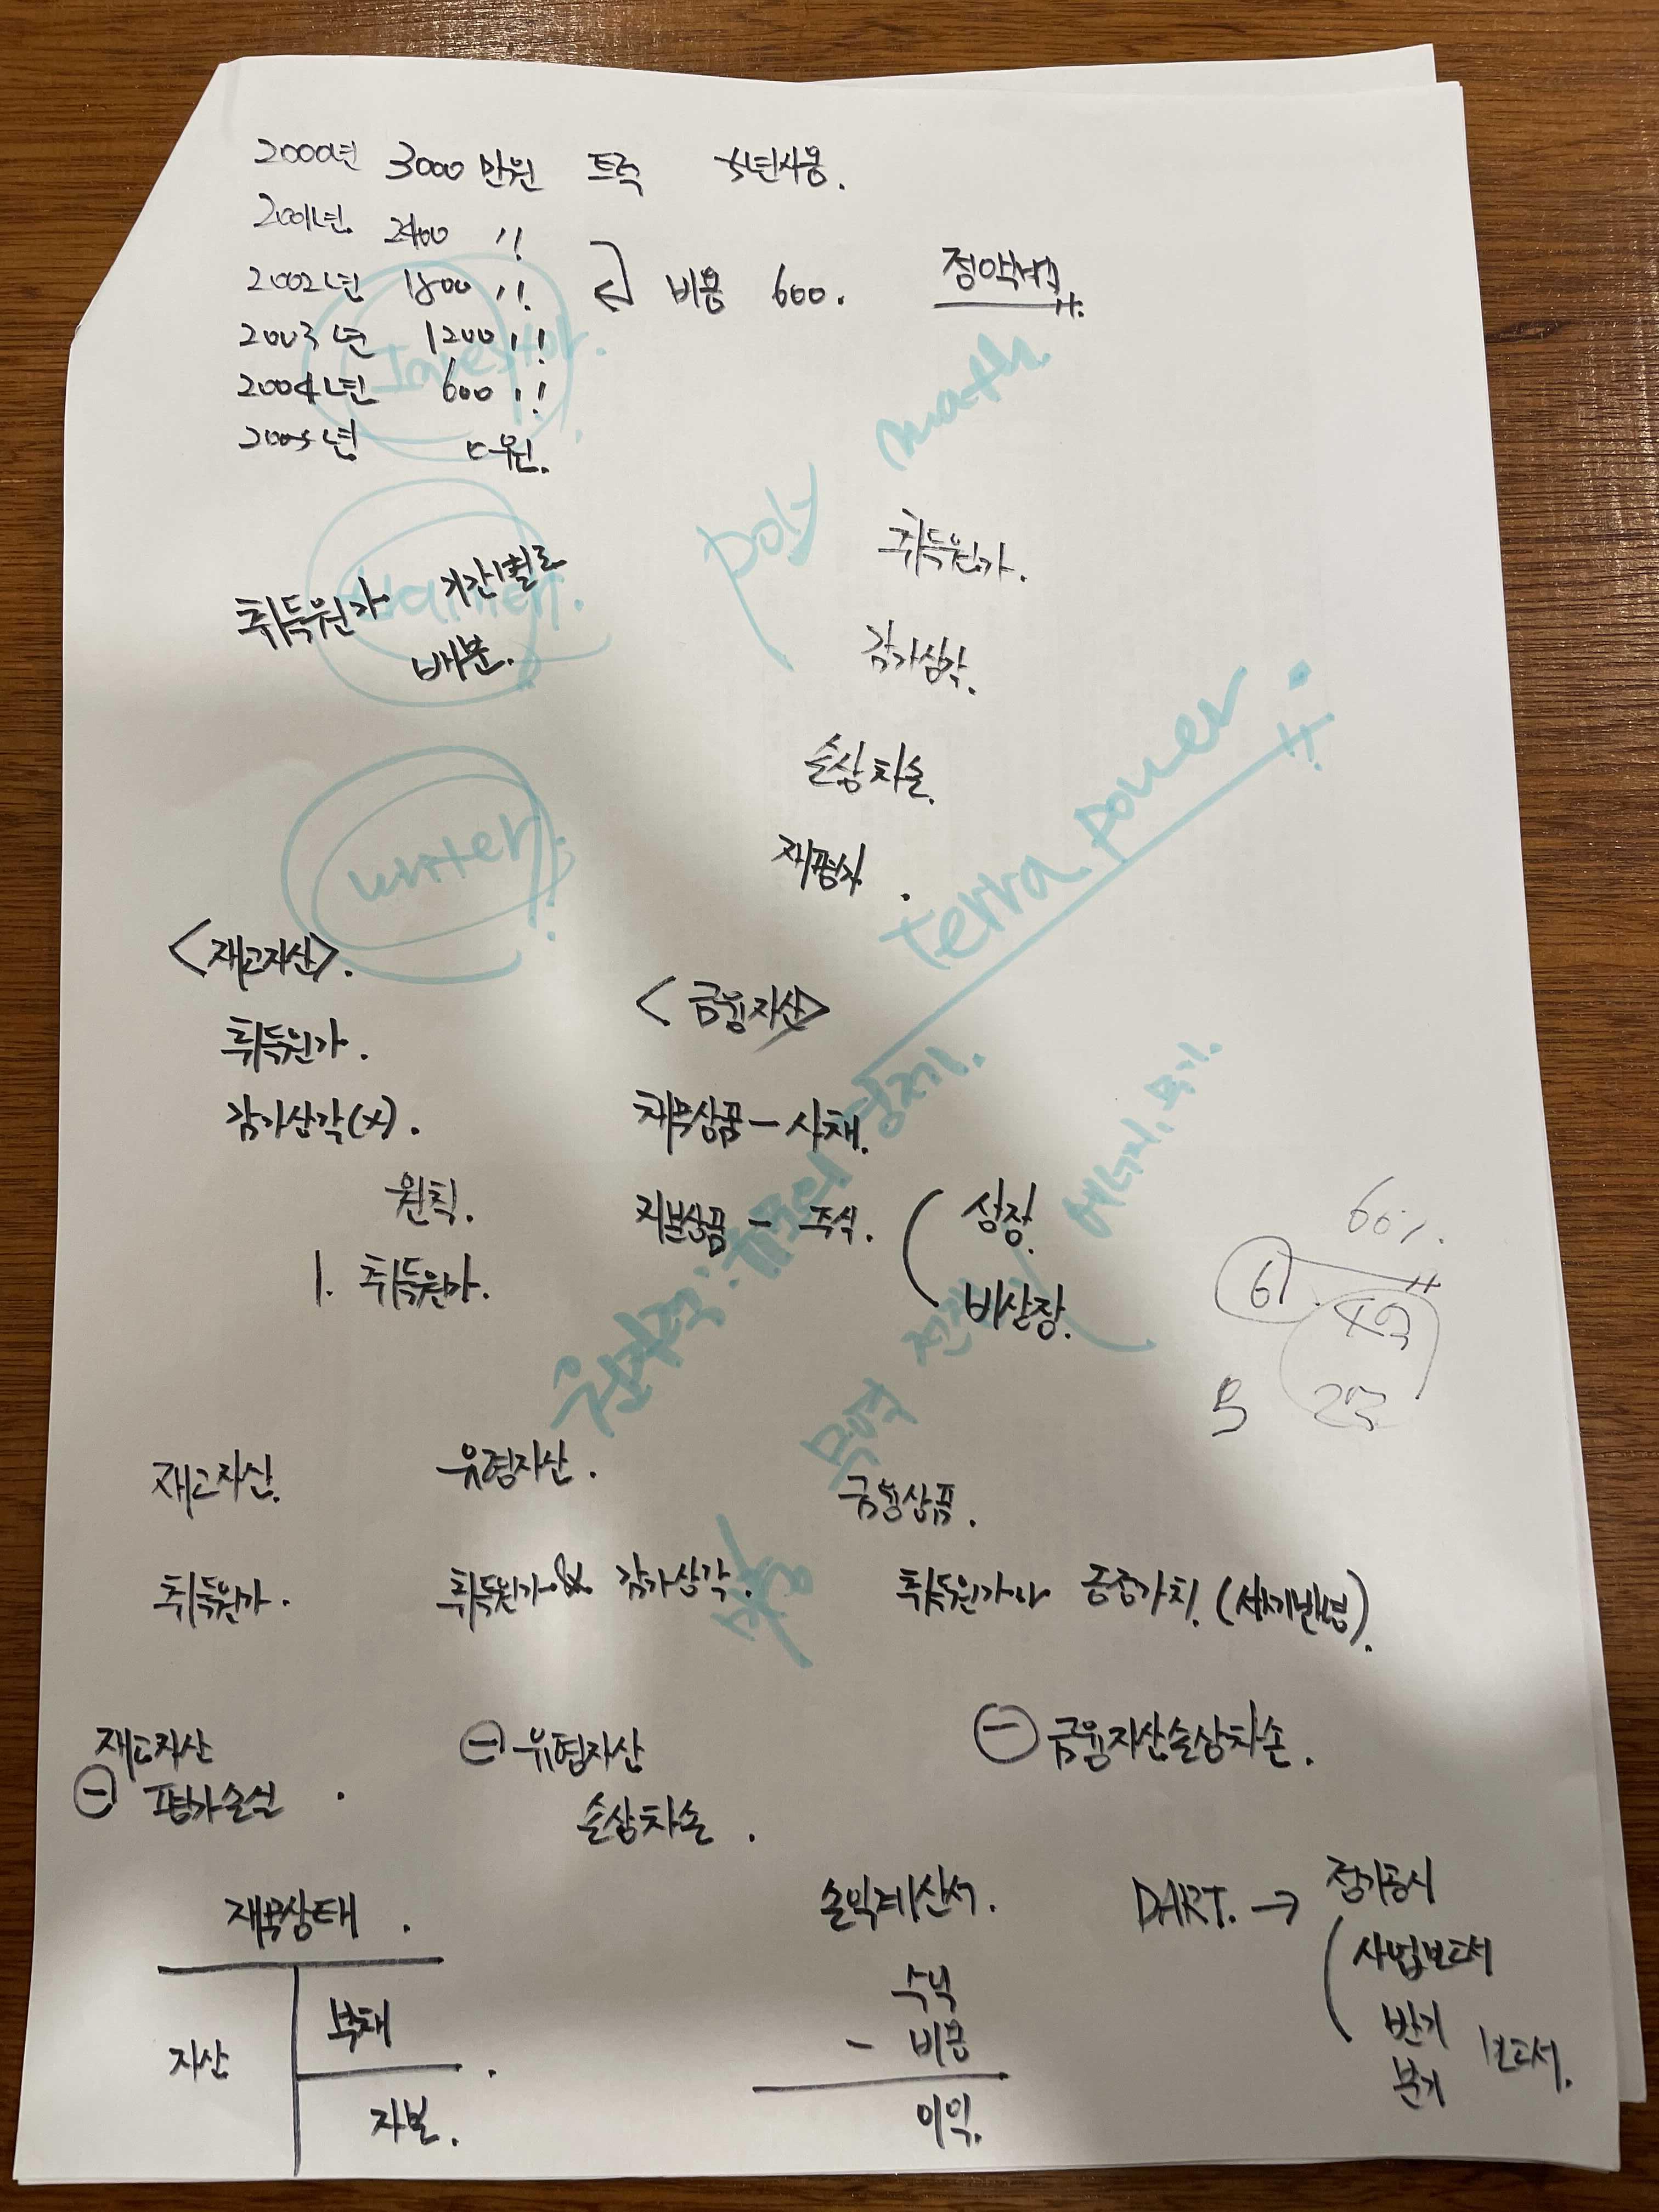 2000년 3000만원 트럭 5년사용.
2001년 2400 〃
2002년 1800 〃 비용 600. 정액법
2003년 1200 〃
2004년 600 〃
2005년 0원.
Investor.
math
poly
취득원가 기간별로
배분.
취득원가.
감가상각.
손상차손.
재평가.
writer
terra power.
<재고자산>.
취득원가.
감가상각(x).
원칙.
1. 취득원가.
<금융자산>
채무상품 - 사채.
지분상품 - 주식. 상장.
비상장.
에너지.
60%.
61. 49
5 23
재고자산. 유형자산. 금융상품.
취득원가. 취득원가 & 감가상각. 취득원가 공정가치. (시가반영).
재고자산
㊀ 평가손실.
㊀ 유형자산
손상차손.
㊀ 금융자산손상차손.
재무상태.
자산 부채.
자본.
손익계산서.
수익
- 비용
이익.
DART. → 정기공시
사업보고서
반기
분기 보고서.